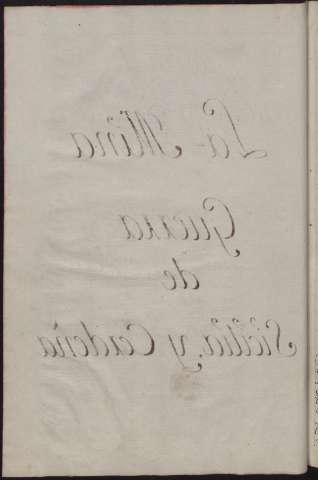 La Mina
Guerra
de
Sicilia, y Cerdeña